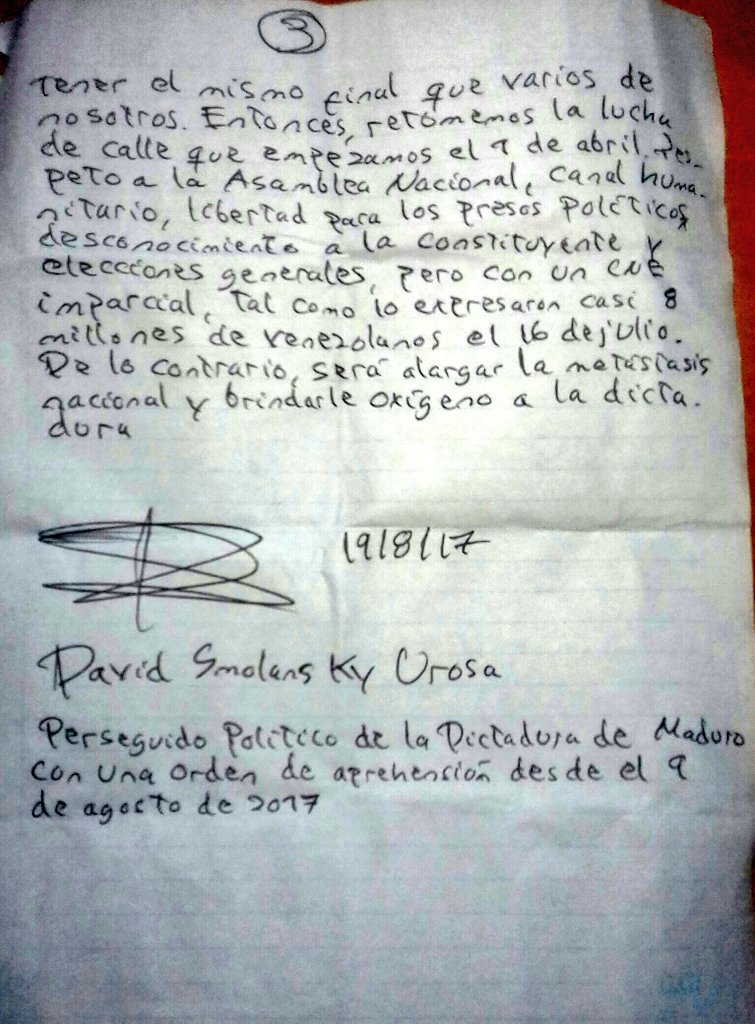 3
tener el mismo final que varios de
nosotros. Entonces, retomemos la lucha
de calle que empezamos el 1 de abril. Res-
peto a la Asamblea Nacional, canal huma-
nitario, libertad para los presos políticos,
desconocimiento a la constituyente y
elecciones generales, pero con un CNE
imparcial, tal como lo expresaron casi 8
millones de venezolanos el 16 de julio.
De lo contrario, será alargar la metástasis
nacional y brindarle oxígeno a la dicta-
dura
19/8/17
David Smolansky Urosa
Perseguido Político de la Dictadura de Maduro
con una orden de aprehensión desde el 9
de agosto de 2017